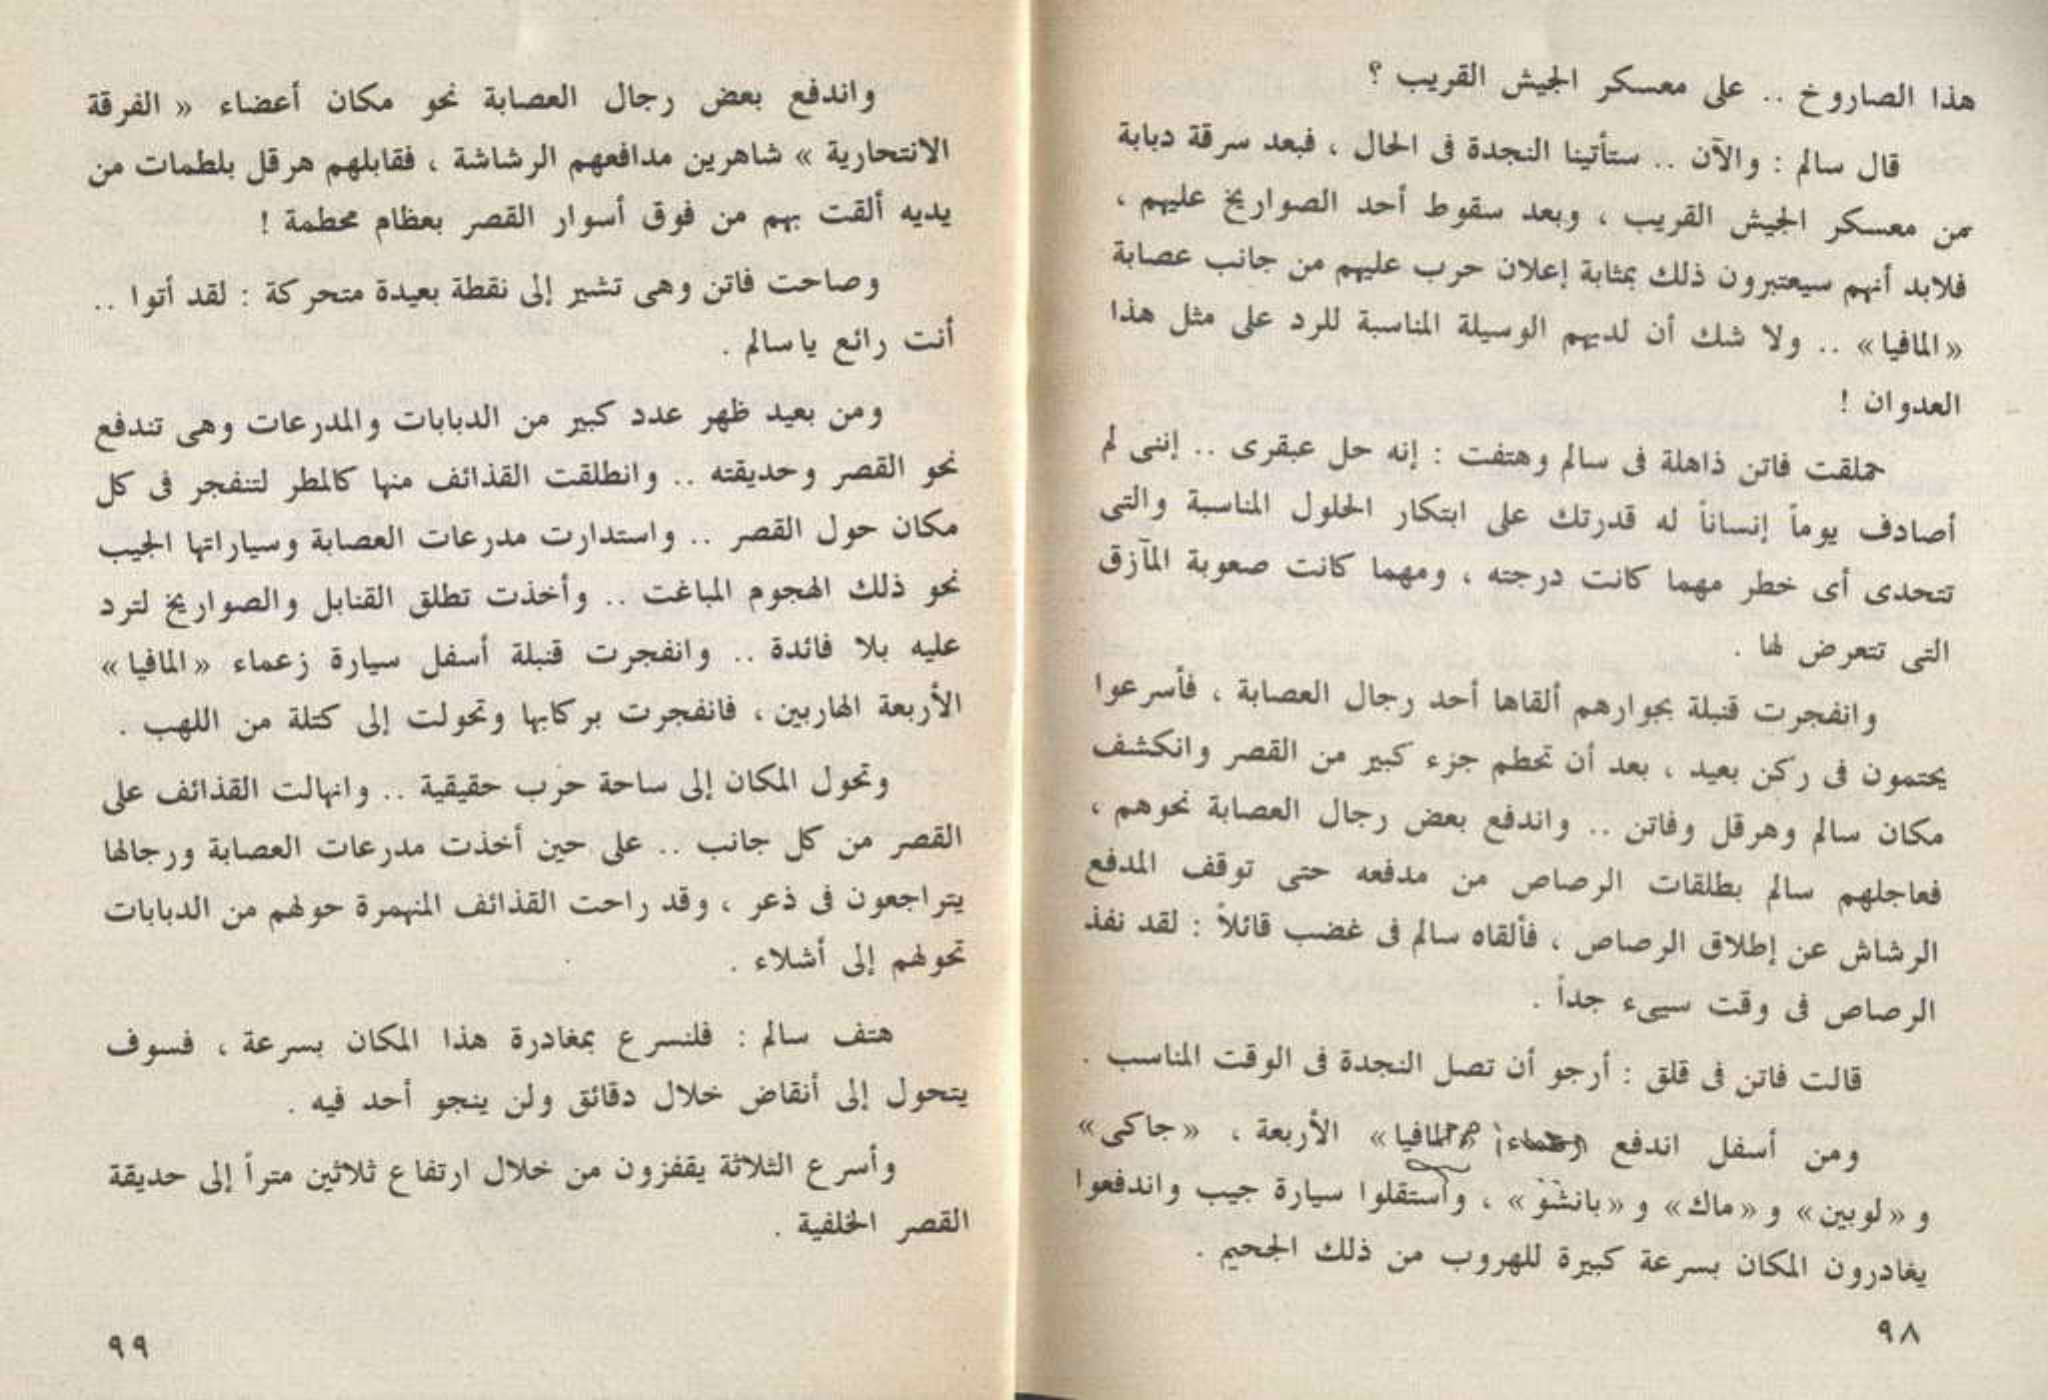 هذا الصاروخ .. على معسكر الجيش القريب ؟
قال سالم : والآن .. ستأتينا النجدة فى الحال ، فبعد سرقة دبابة
من معسكر الجيش القريب ، وبعد سقوط أحد الصواريخ عليهم ،
فلابد أنهم سيعتبرون ذلك بمثابة إعلان حرب عليهم من جانب عصابة
«المافيا» .. ولا شك أن لديهم الوسيلة المناسبة للرد على مثل هذا
العدوان !
حملقت فاتن ذاهلة فى سالم وهتفت : إنه حل عبقرى .. إننى لم
أصادف يوماً إنساناً له قدرتك على ابتكار الحلول المناسبة والتى
تتحدى أى خطر مهما كانت درجته ، ومهما كانت صعوبة المآزق
التى تتعرض لها .
وانفجرت قنبلة بجوارهم ألقاها أحد رجال العصابة ، فأسرعوا
يحتمون فى ركن بعيد ، بعد أن تحطم جزء كبير من القصر وانكشف
مكان سالم وهرقل وفاتن .. واندفع بعض رجال العصابة نحوهم ،
فعاجلهم سالم بطلقات الرصاص من مدفعه حتى توقف المدفع
الرشاش عن إطلاق الرصاص ، فألقاه سالم فى غضب قائلاً : لقد نفذ
الرصاص فى وقت سيىء جداً .
قالت فاتن فى قلق : أرجو أن تصل النجدة فى الوقت المناسب .
ومن أسفل اندفع زعماء «المافيا» الأربعة ، «جاكى»
و «لوبين» و «ماك» و «بانشو» ، واستقلوا سيارة جيب واندفعوا
يغادرون المكان بسرعة كبيرة للهروب من ذلك الجحيم .
٩٨
واندفع بعض رجال العصابة نحو مكان أعضاء « الفرقة
الانتحارية » شاهرين مدافعهم الرشاشة ، فقابلهم هرقل بلطمات من
يديه ألقت بهم من فوق أسوار القصر بعظام محطمة !
وصاحت فاتن وهى تشير إلى نقطة بعيدة متحركة : لقد أتوا ..
أنت رائع ياسالم .
ومن بعيد ظهر عدد كبير من الدبابات والمدرعات وهى تندفع
نحو القصر وحديقته .. وانطلقت القذائف منها كالمطر لتنفجر فى كل
مكان حول القصر .. واستدارت مدرعات العصابة وسياراتها الجيب
نحو ذلك الهجوم المباغت .. وأخذت تطلق القنابل والصواريخ لترد
عليه بلا فائدة .. وانفجرت قنبلة أسفل سيارة زعماء «المافيا»
الأربعة الهاربين ، فانفجرت بركابها وتحولت إلى كتلة من اللهب .
وتحول المكان إلى ساحة حرب حقيقية .. وانهالت القذائف على
القصر من كل جانب .. على حين أخذت مدرعات العصابة ورجالها
يتراجعون فى ذعر ، وقد راحت القذائف المنهمرة حولهم من الدبابات
تحولهم إلى أشلاء .
هتف سالم : فلنسرع بمغادرة هذا المكان بسرعة ، فسوف
يتحول إلى أنقاض خلال دقائق ولن ينجو أحد فيه .
وأسرع الثلاثة يقفزون من خلال ارتفاع ثلاثين متراً إلى حديقة
القصر الخلفية .
٩٩